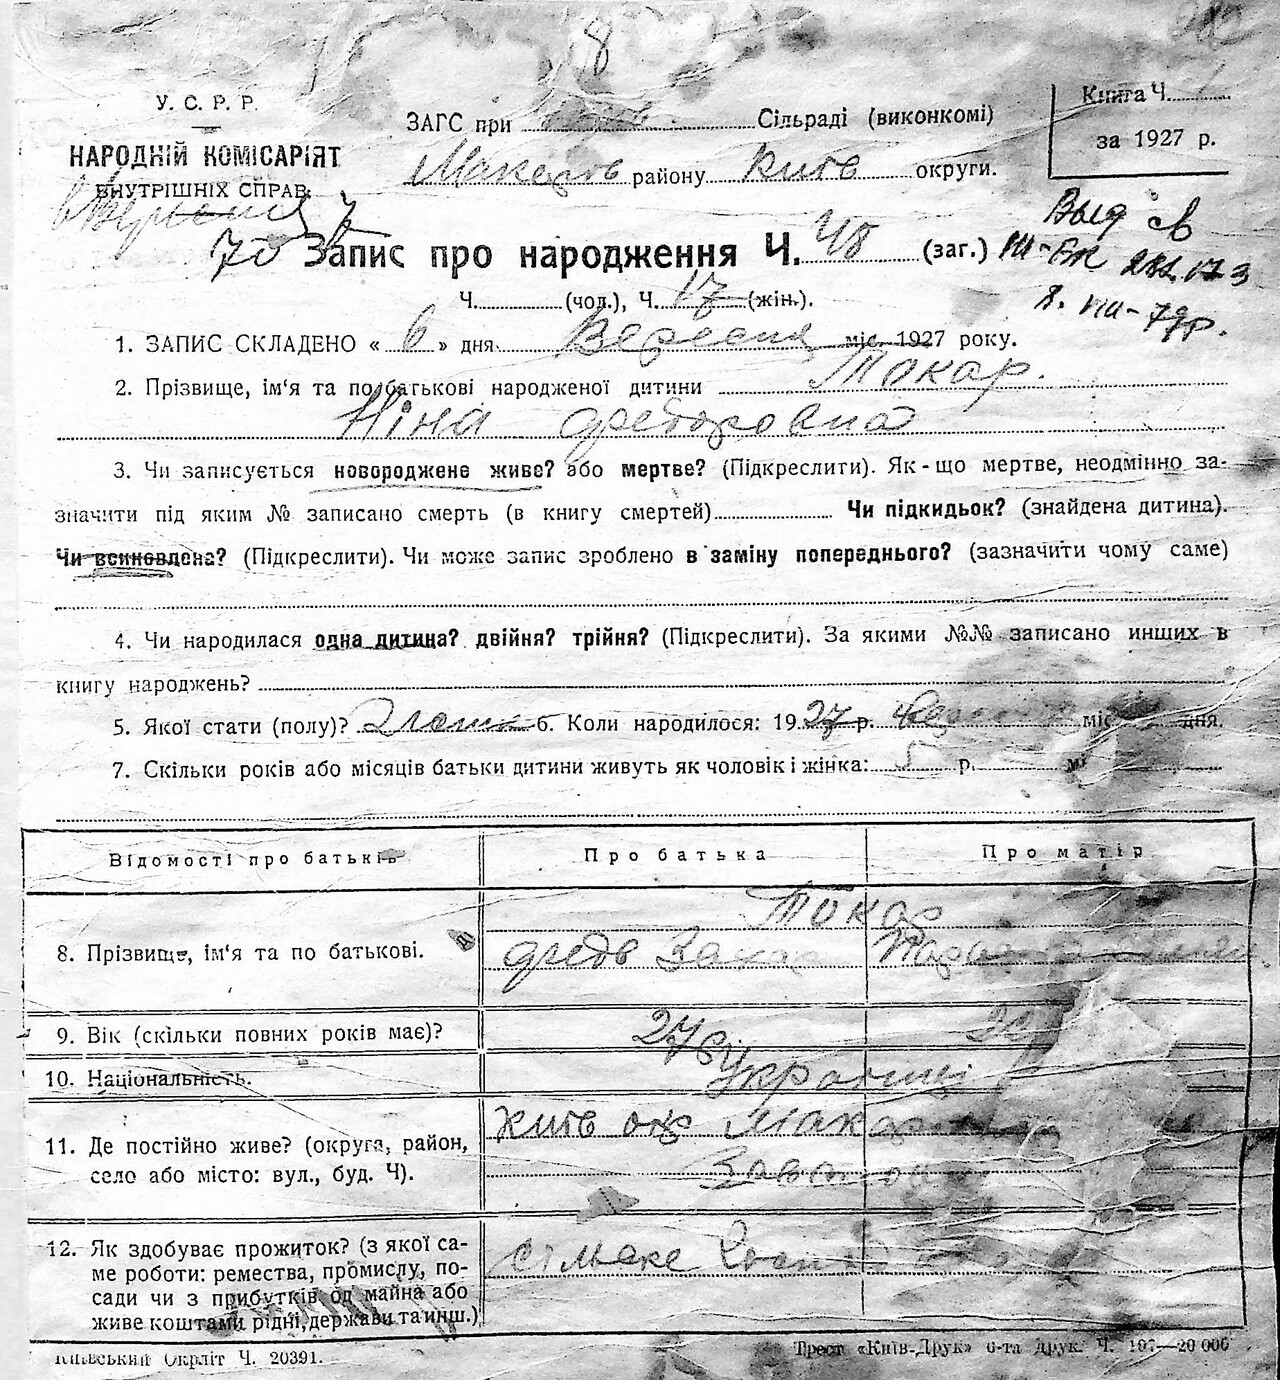 8
У. С. Р. Р.
НАРОДНІЙ КОМІСАРІЯТ
ВНУТРІШНІХ СПРАВ
ЗАГС при Сільраді (виконкомі)
Макарів району Київ округи.
Книга Ч.
за 1927 р.
6 Вересня
70 Запис про народження Ч. 48 (заг.)
Ч. (чол.), Ч. 17 (жін.).
Выд св
III-БК
1. ЗАПИС СКЛАДЕНО « 6 » дня Вересня міс. 1927 року.
2. Прізвище, ім‘я та по батькові народженої дитини Токар.
Ніна Федоровна
3. Чи записується новороджене живе? або мертве? (Підкреслити). Як-що мертве, неодмінно за-
значити під яким № записано смерть (в книгу смертей) Чи підкидьок? (знайдена дитина).
Чи всиновлена? (Підкреслити). Чи може запис зроблено в заміну попереднього? (зазначити чому саме)
4. Чи народилася одна дитина? двійня? трійня? (Підкреслити). За якими №№ записано инших в
книгу народжень?
5. Якої стати (полу)? 6. Коли народилося: 1927 р. Вересня міс дня.
7. Скільки років або місяців батьки дитини живуть як чоловік і жінка: 5 р. м
Відомості про батьків Про батька Про матір
Токар
8. Прізвище, ім‘я та по батькові.
9. Вік (скільки повних років має)? 27
10. Національність. Україн
11. Де постійно живе? (округа, район, Київ окр Макар
село або місто: вул., буд. Ч).
12. Як здобуває прожиток? (з якої са-
ме роботи: ремества, промислу, по-
сади чи з прибутків од майна або
живе коштами рідні, держави та инш.)
Київський Окрліт Ч. 20391.
Трест «Київ-Друк» 6-та друк. Ч. 197—20 000